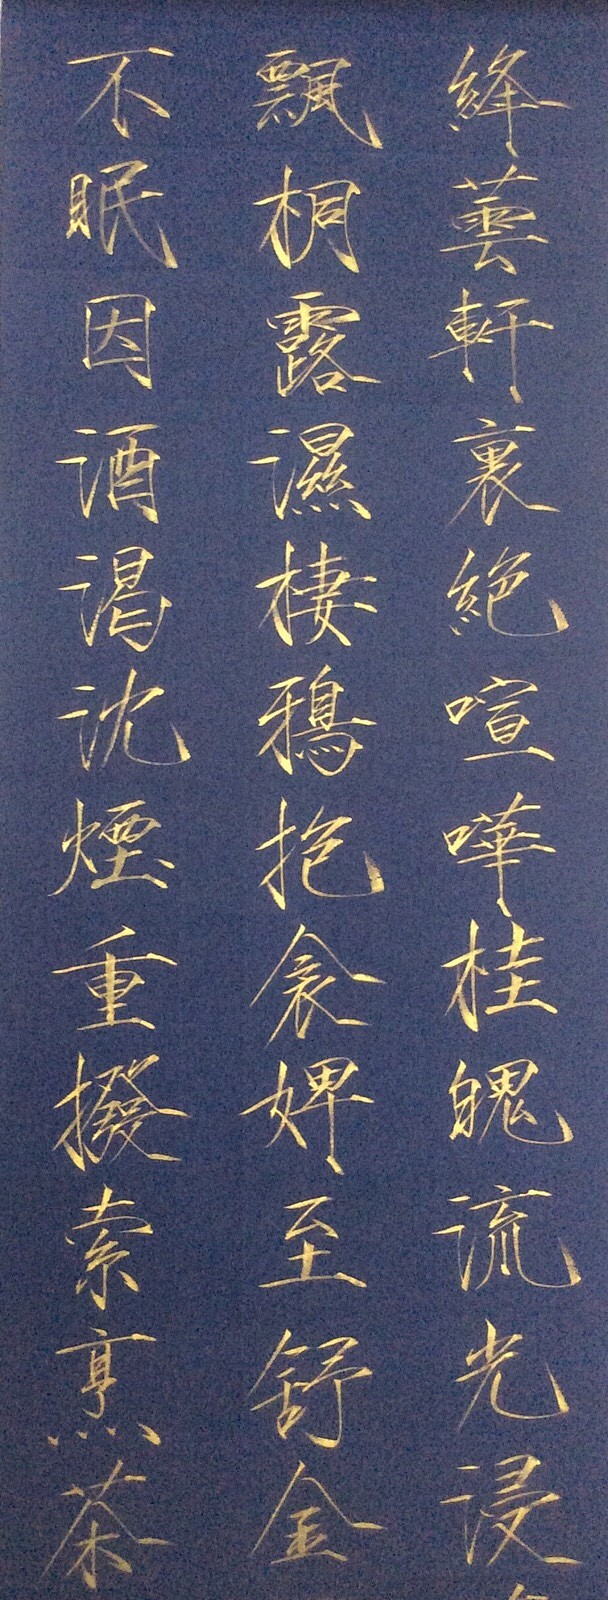 絳蕓軒裏絶喧嘩桂魄流光浸
飄桐露濕棲鴉抱衾婢至舒金
不眠因酒渴沈煙重撥索烹茶